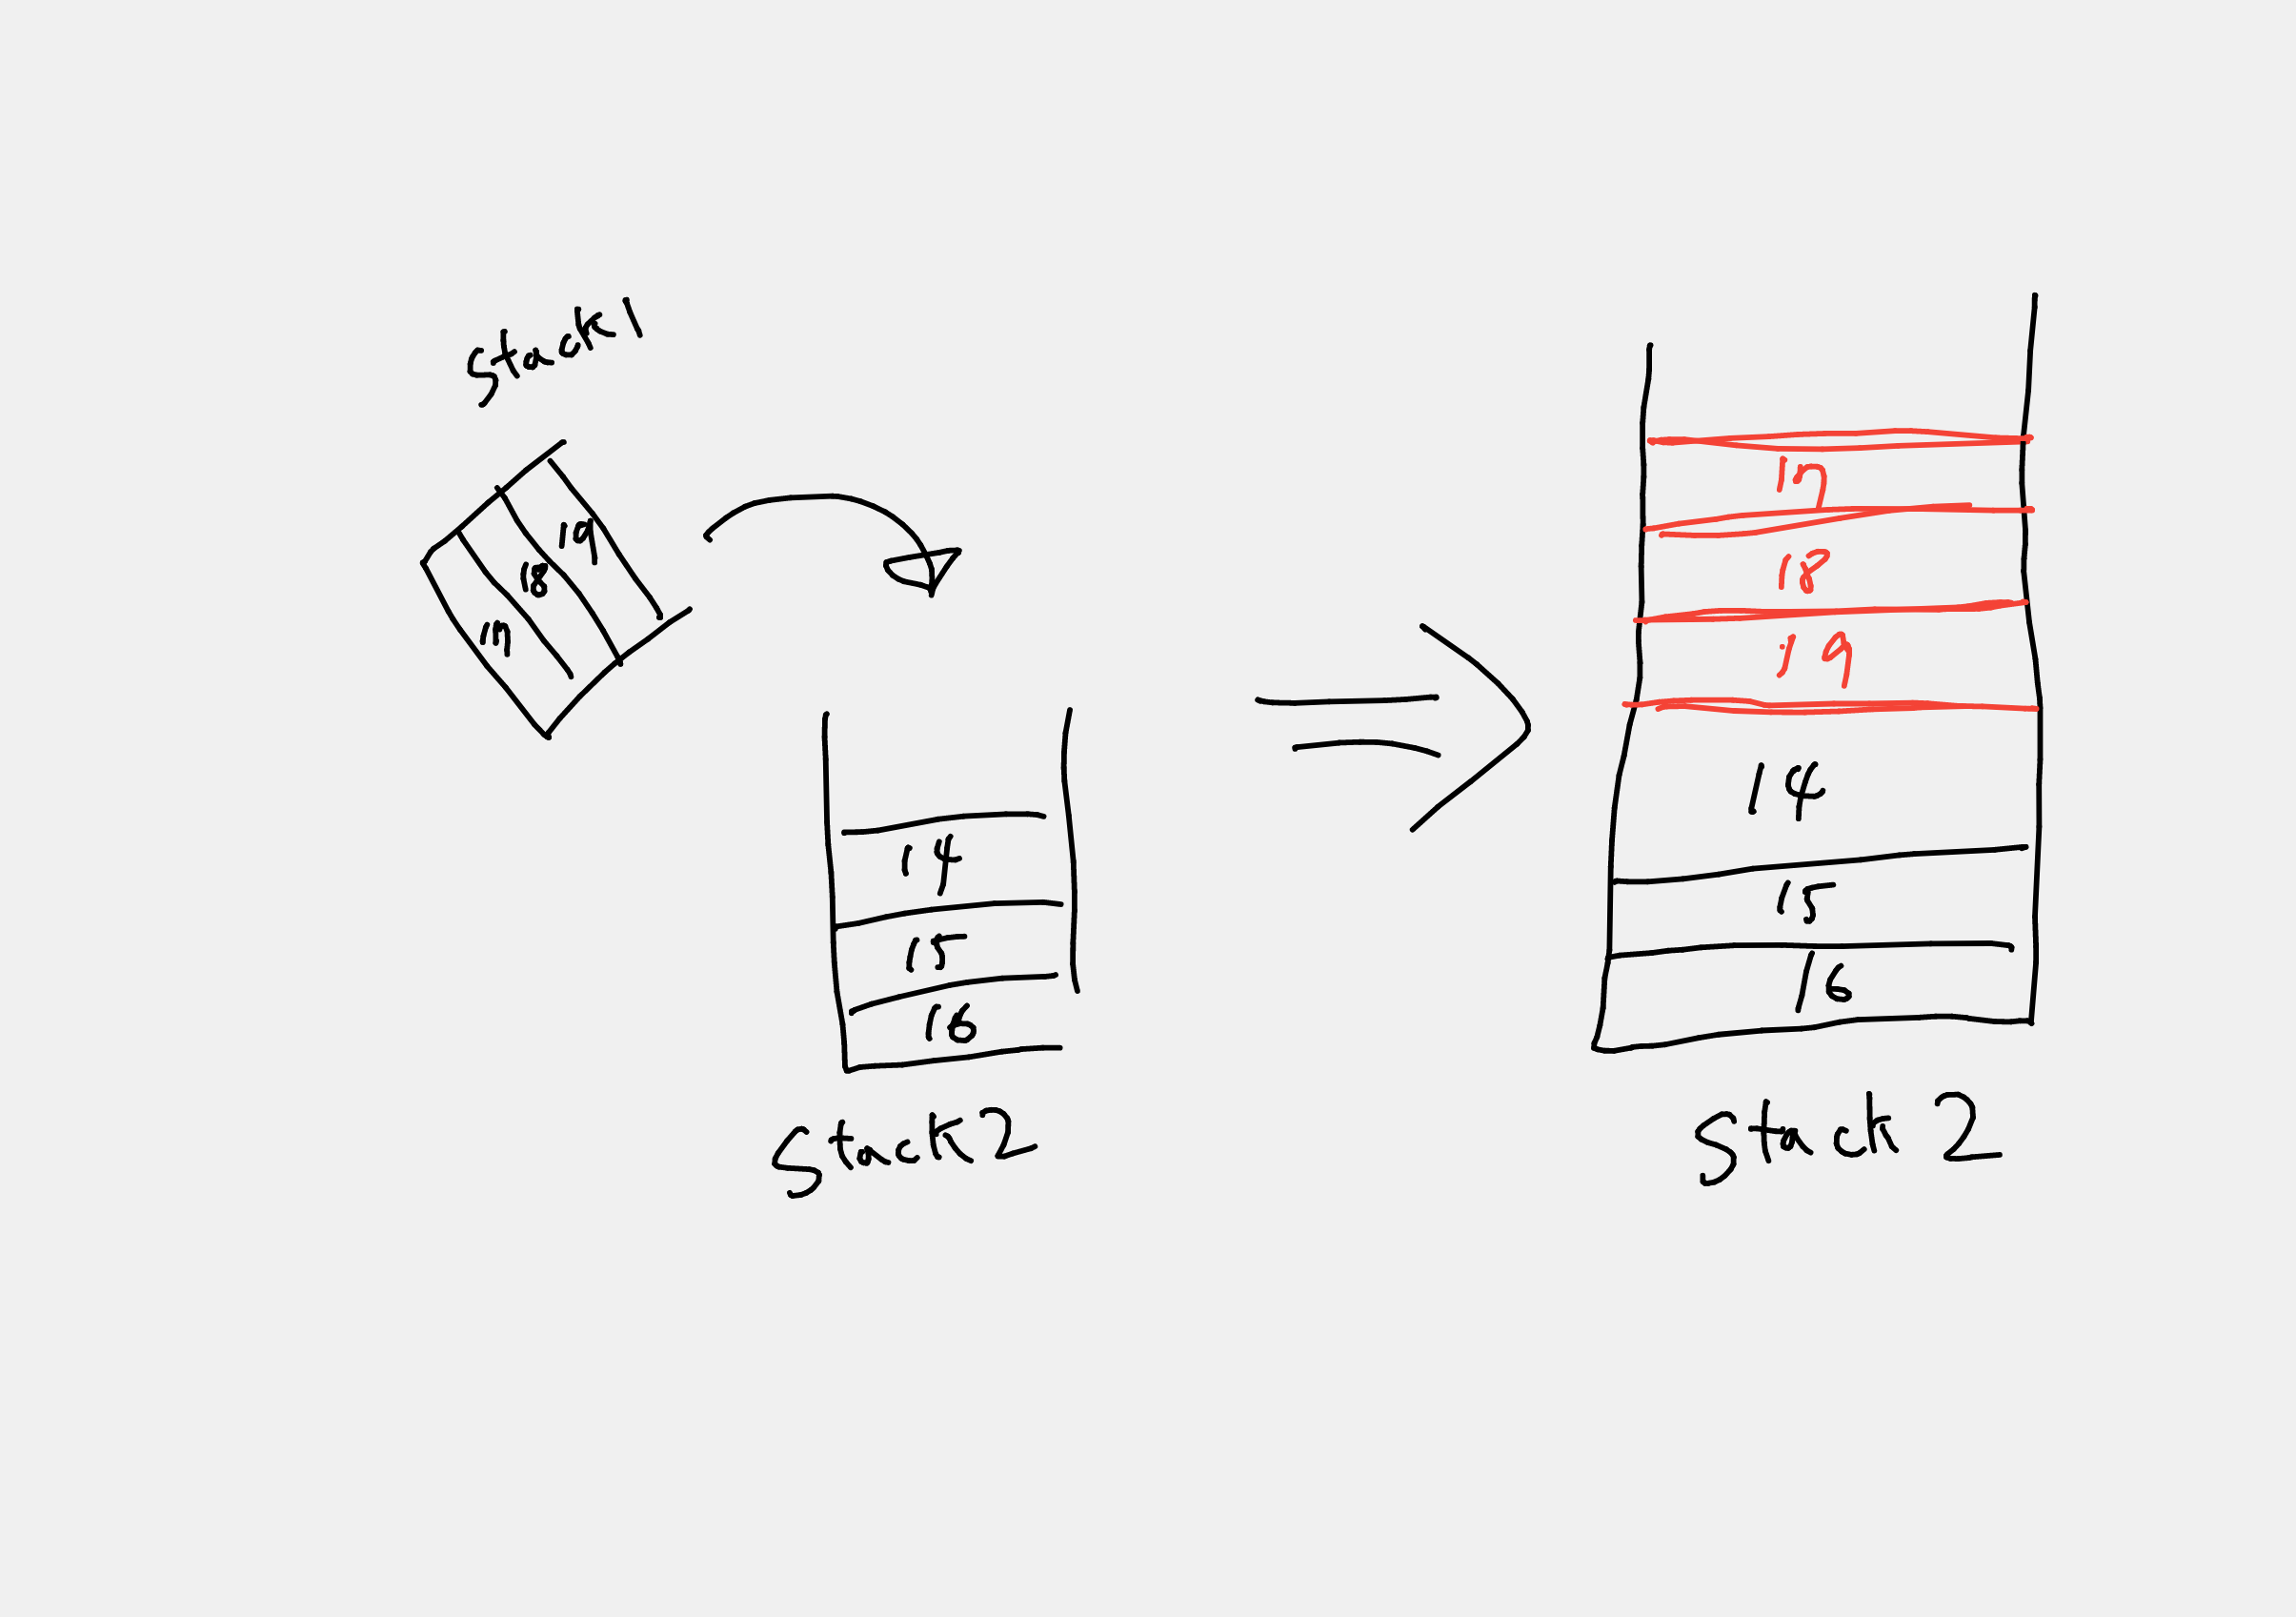 Stack 1
19
18
17
14
15
16
Stack 2
17
18
19
14
15
16
Stack 2